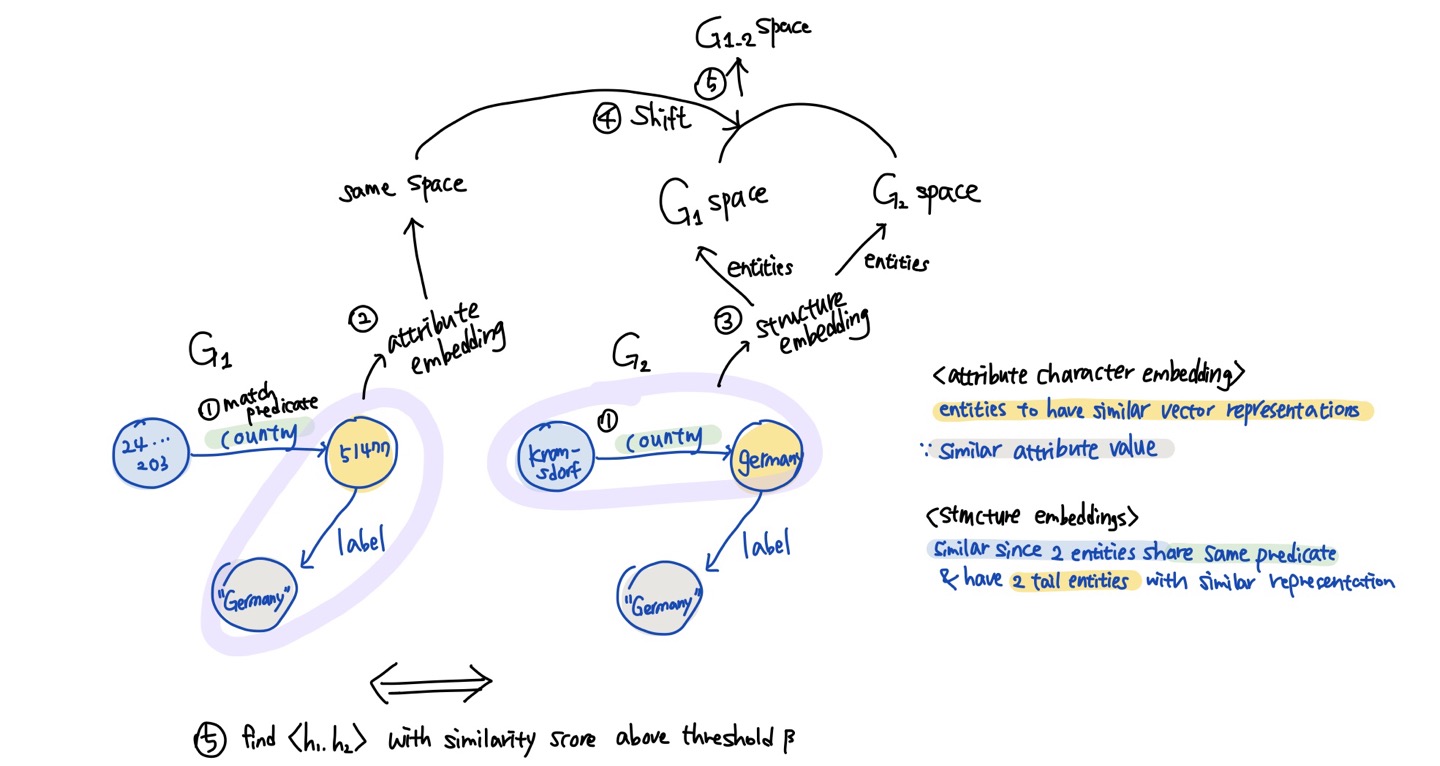 G1-2 space
⑤
④ Shift
same space
G1 space
G2 space
entities
entities
② attribute
embedding
③ structure
embedding
G1
G2
① match
predicate
country
24...
203
51477
label
"Germany"
①
country
Krom-
sdorf
germany
label
"Germany"
<attribute character embedding>
entities to have similar vector representations
∵ similar attribute value
<structure embeddings>
similar since 2 entities share same predicate
& have 2 tail entities with similar representation
⑤ find <h1. h2> with similarity score above threshold β